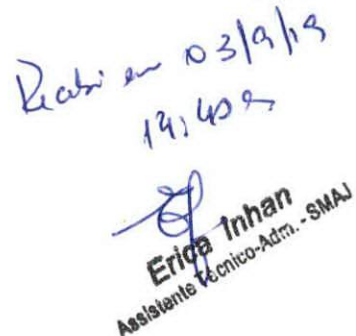 Recebi em 03/9/19
14:40 hs
Erica Inhan
Assistente Técnico-Adm. - SMAJ